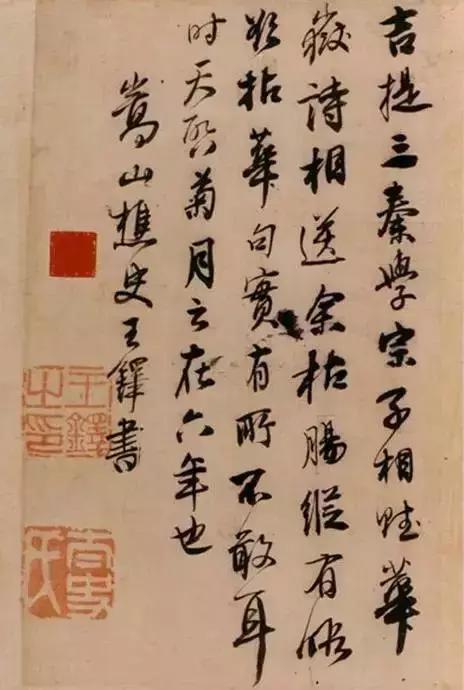 吉提三秦學宗子相賦華
嶽詩相送余枯腸縱有
拈華句實有所不敢耳
时天啟菊月在六年也
嵩山樵史王鐸書
王鐸之印